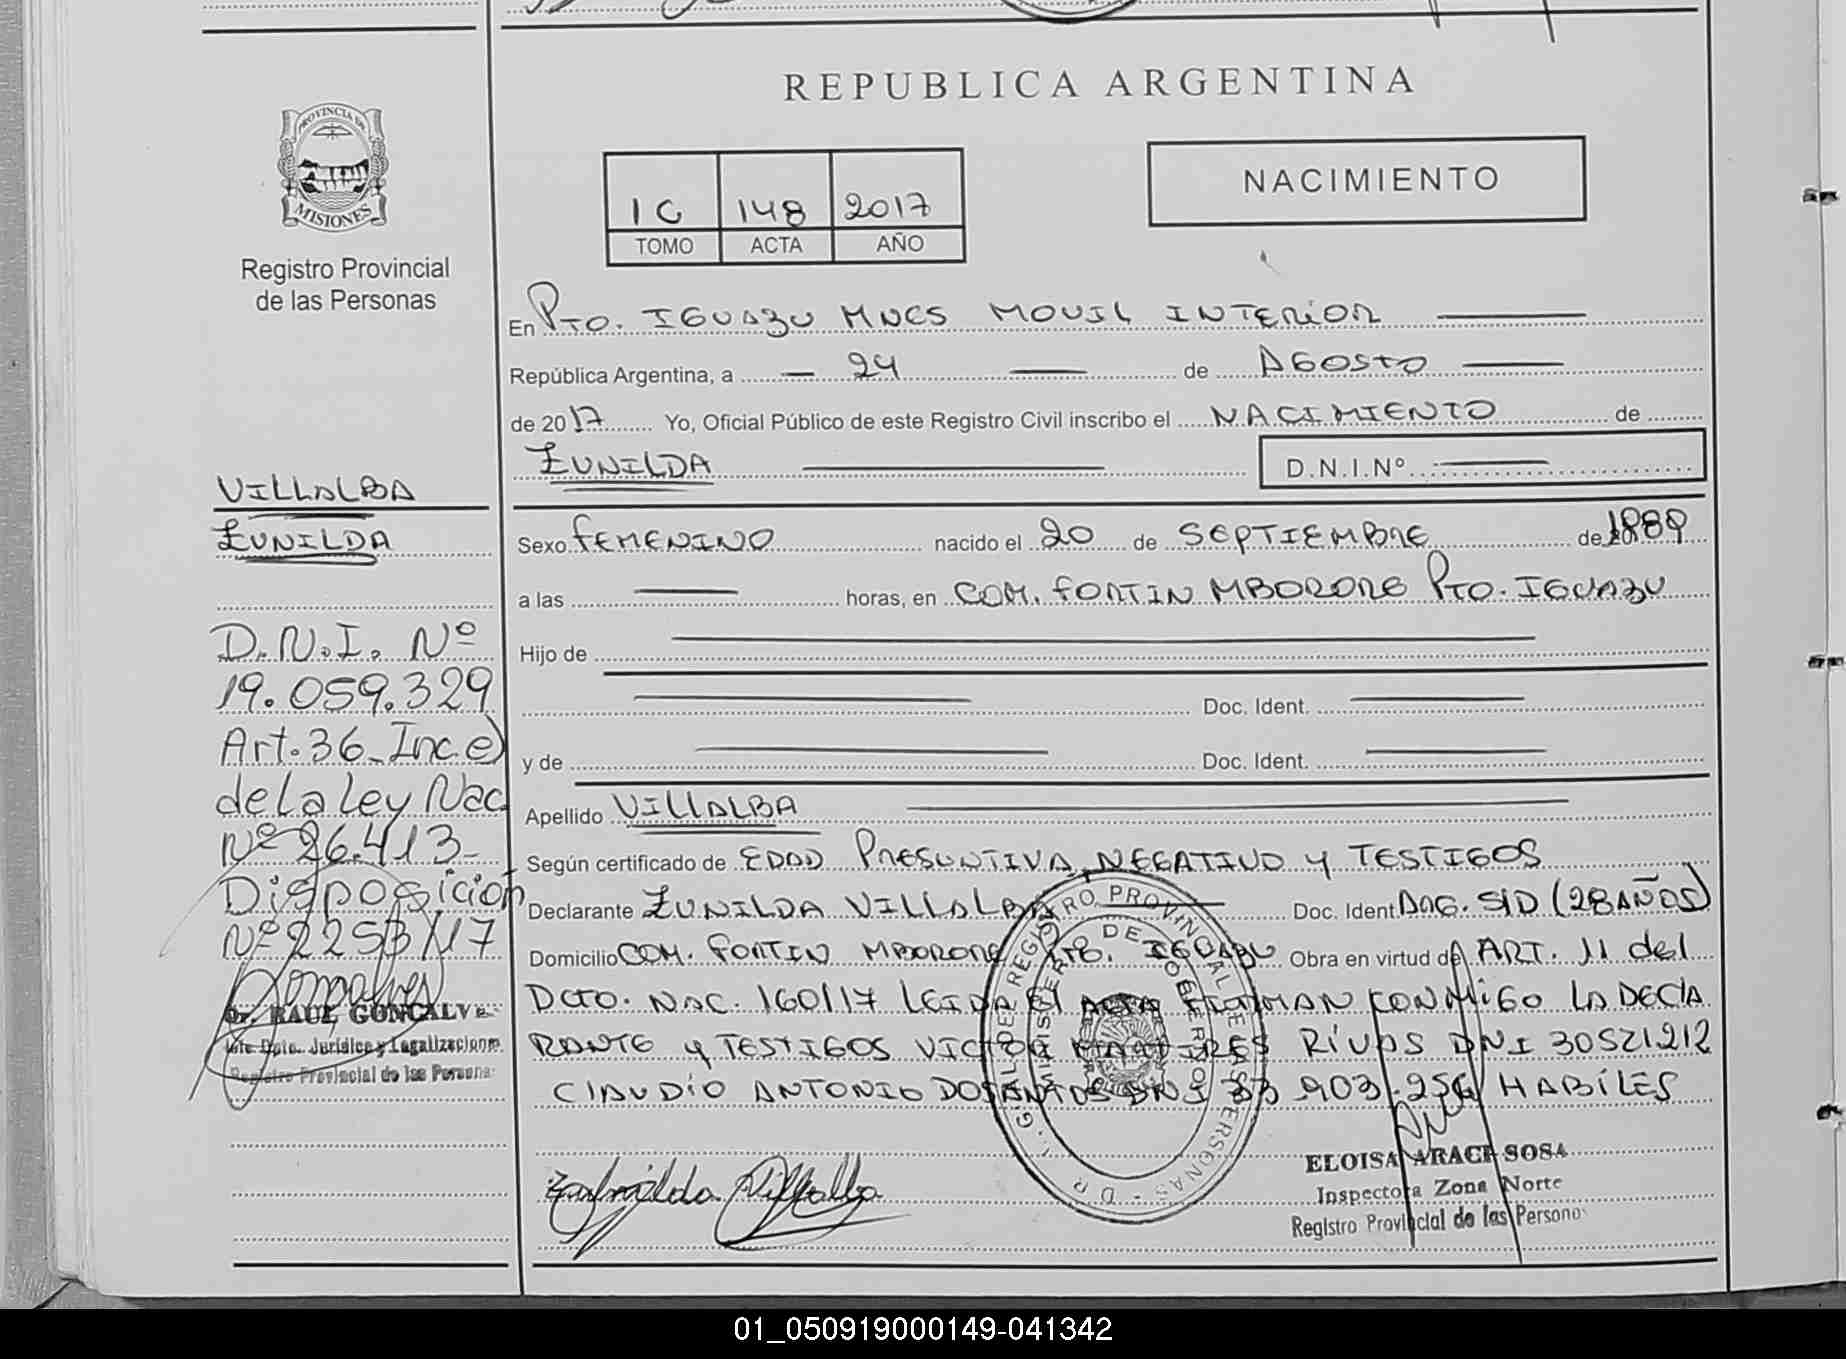 REPUBLICA ARGENTINA
PROVINCIA DE
MISIONES
Registro Provincial
de las Personas
NACIMIENTO
1C 148 2017
TOMO ACTA AÑO
En Pto. IGUAZU MNES MOVIL INTERIOR
República Argentina, a 24 de AGOSTO
de 2017 Yo, Oficial Público de este Registro Civil inscribo el NACIMIENTO de
ZUNILDA D.N.I. Nº
VILLALBA
ZUNILDA
D.N.I. Nº
19.059.329
Art. 36 - Inc. e)
de la Ley Nac
Nº 26.413-
Disposición
Nº 2253/17
Dr. RAUL GONCALVES
Jefe Dpto. Jurídica y Legalizaciones
Registro Provincial de las Personas
Sexo FEMENINO nacido el 20 de SEPTIEMBRE de 1989
a las horas, en COM. FORTIN MBORORE Pto. IGUAZU
Hijo de
Doc. Ident.
y de Doc. Ident.
Apellido VILLALBA
Según certificado de EDAD PRESUNTIVA, NEGATIVO y TESTIGOS
Declarante ZUNILDA VILLALBA Doc. Ident. S/D (28 AÑOS)
Domicilio COM. FORTIN MBORORE Pto. IGUAZU Obra en virtud del ART. 11 del
DCTO. NAC. 160/17 LEIDA El ACTA FIRMAN CONMIGO LA DECLA
RANTE y TESTIGOS VICTOR RIVAS DNI 30521212
CLAUDIO ANTONIO DOSANTOS DNI 33.903.256 HABILES
Zunilda Villalba
REGISTRO PROVINCIAL DE LAS PERSONAS
MINISTERIO DE GOBIERNO
ELOISA ARACE SOSA
Inspectora Zona Norte
Registro Provincial de las Personas
01_050919000149-041342